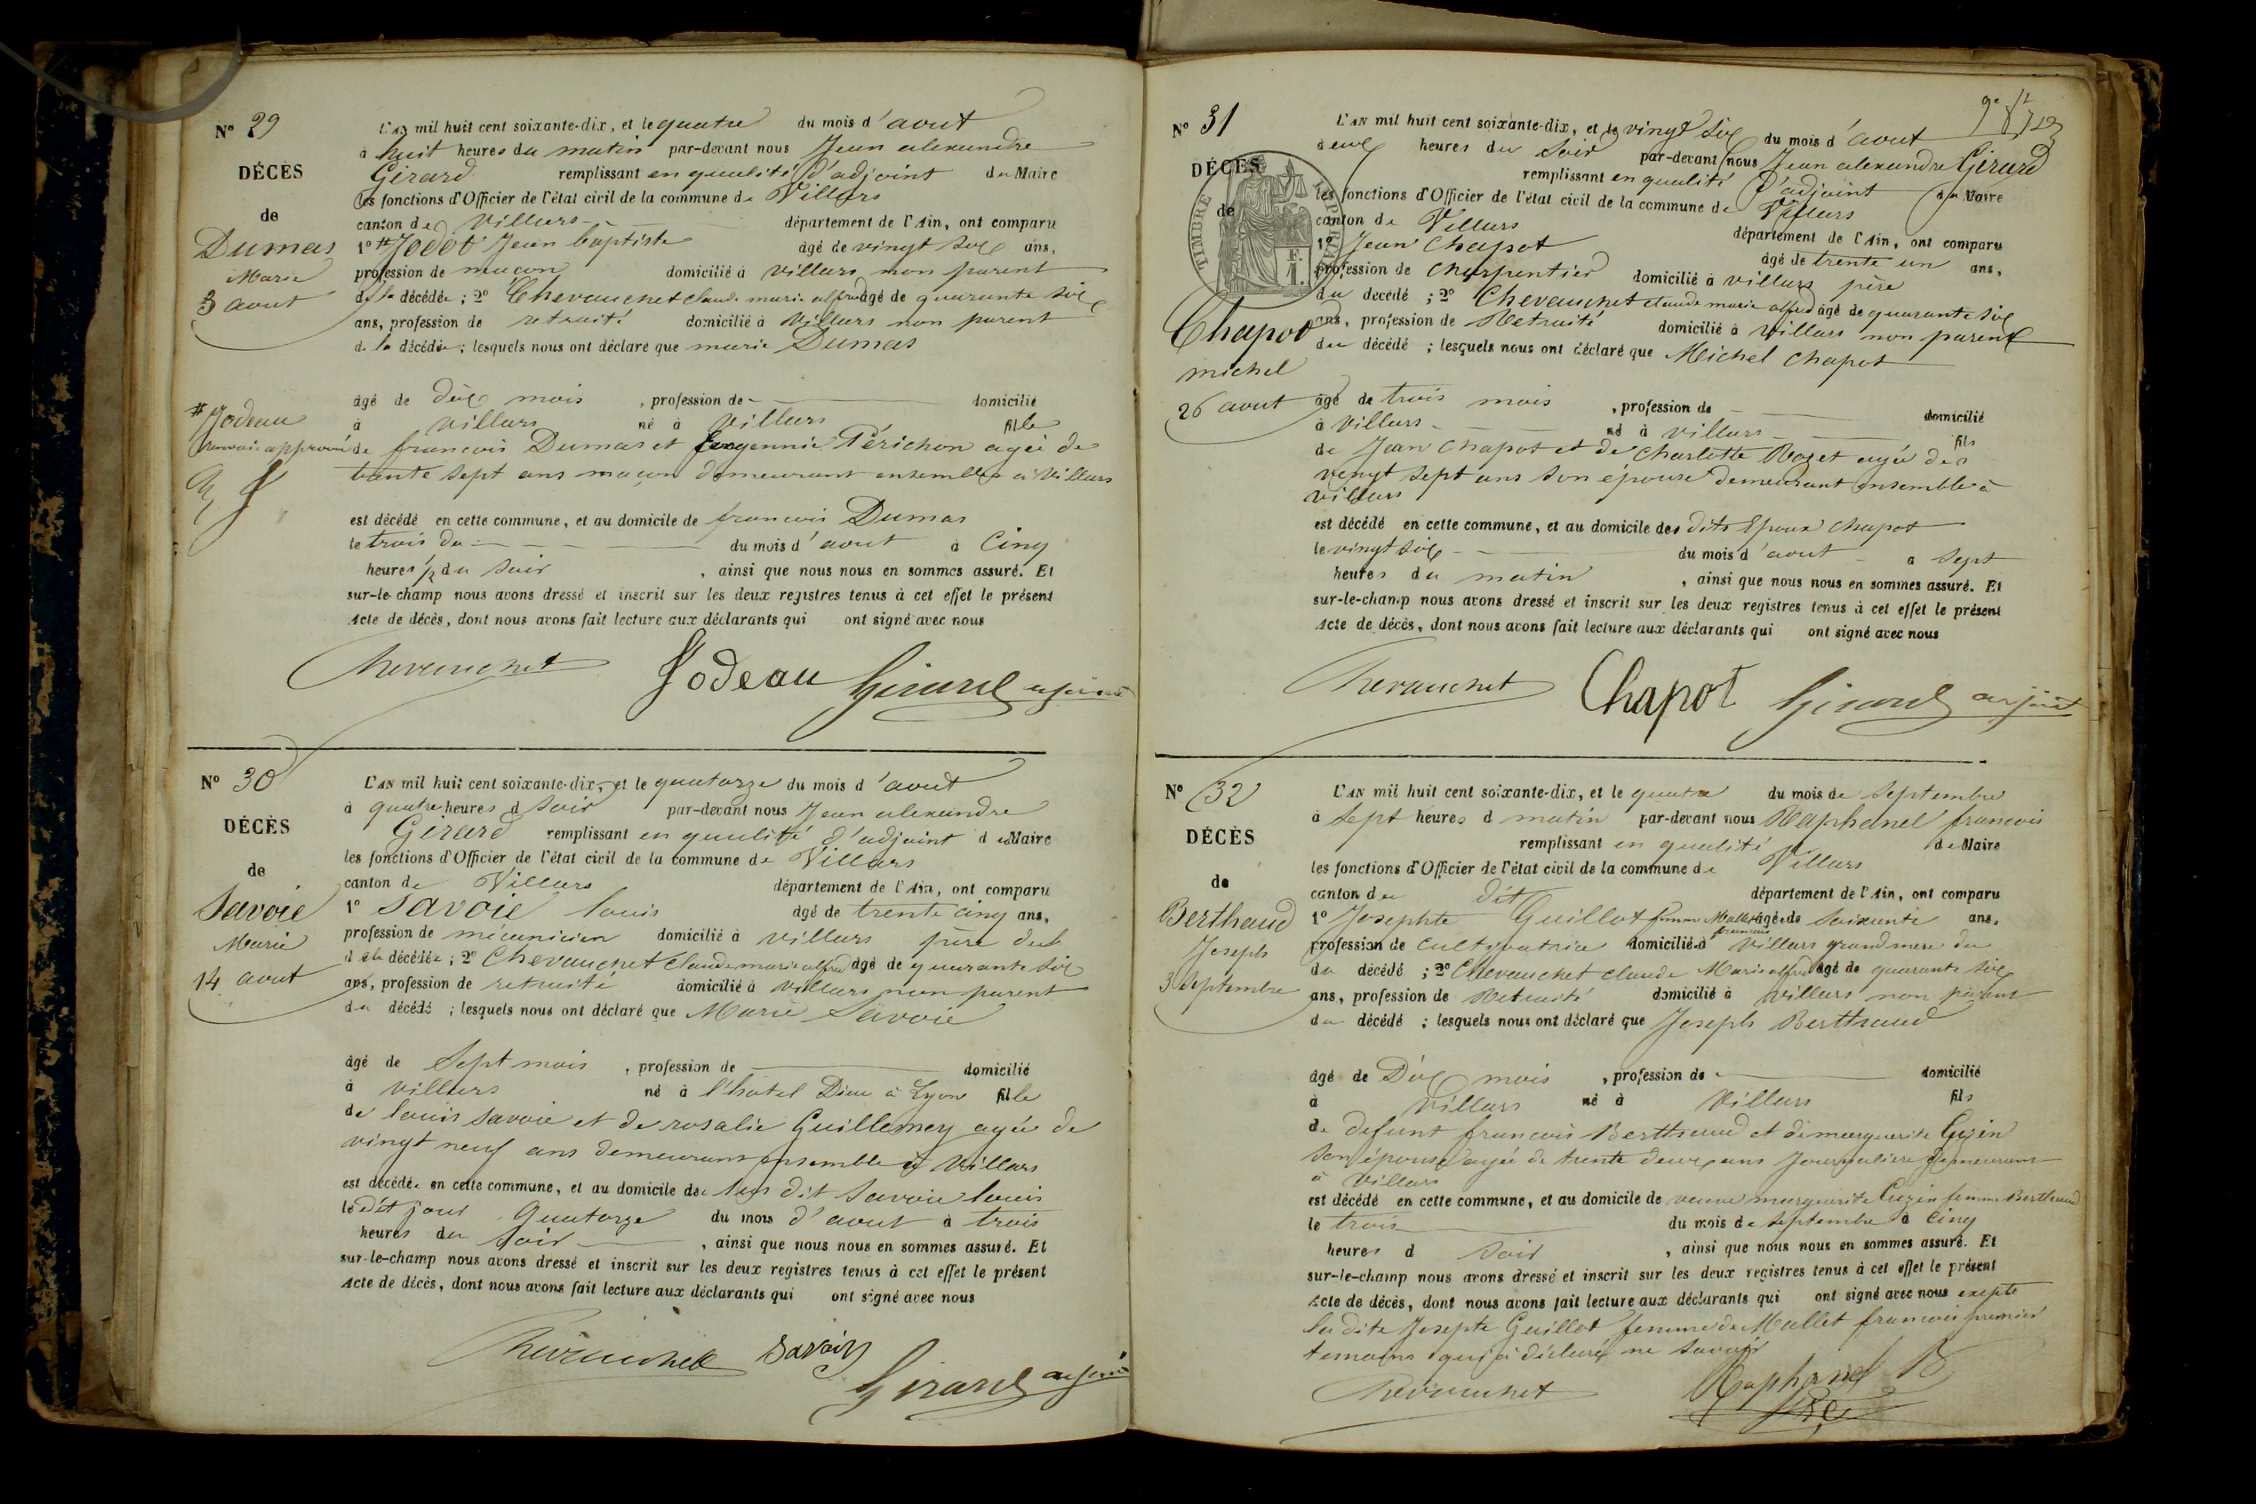 N° 29
DÉCÈS
de
Dumas
Marie
3 aout
L'AN mil huit cent soixante-dix, et le quatre du mois d'aout
à huit heures du matin par-devant nous Jean alexandre
Girard remplissant en qualité d'adjoint du Maire
les fonctions d'Officier de l'état civil de la commune de Villars
canton de Villars département de l'Ain, ont comparu
1° # Jodot Jean baptiste âgé de vingt six ans,
profession de maçon domicilié à villars non parent
de la décédée ; 2° Chevauchet claude marie alfred âgé de quarante six
ans, profession de retraité domicilié à Villars non parent
de la décédée ; lesquels nous ont déclaré que marie Dumas
âgé de dix mois , profession de domicilié
à villars né à Villars fille
# Jodeau
renvoi approuvé
de francois Dumas et Perichon agée de
trente sept ans maçon demeurant ensemble à Villars
est décédé en cette commune, et au domicile de francois Dumas
le trois du du mois d'aout à Cinq
heures ½ du soir , ainsi que nous nous en sommes assuré. Et
sur-le-champ nous avons dressé et inscrit sur les deux registres tenus à cet effet le présent
Acte de décès, dont nous avons fait lecture aux déclarants qui ont signé avec nous
Chevauchet Jodeau Girard adjoint
N° 30
DÉCÈS
de
Savoie
Marie
14 aout
L'AN mil huit cent soixante-dix, et le quatorze du mois d'aout
à quatre heures d soir par-devant nous Jean alexandre
Girard remplissant en qualité d'adjoint du Maire
les fonctions d'Officier de l'état civil de la commune de Villars
canton de Villars département de l'Ain, ont comparu
1° Savoie louis âgé de trente cinq ans,
profession de mécanicien domicilié à villars père de
de la décédée ; 2° Chevauchet Claude marie alfred âgé de quarante six
ans, profession de retraité domicilié à Villars non parent
du décédé ; lesquels nous ont déclaré que Marie Savoie
âgé de Sept mois , profession de domicilié
à villars né à l'hotel Dieu à Lyon fille
de louis savoie et de rosalie Guillemey agée de
vingt neuf ans demeurant ensemble à Villars
est décédée en cette commune, et au domicile de dit Savoie louis
le dit jour Quatorze du mois d'aout à trois
heures du soir , ainsi que nous nous en sommes assuré. Et
sur-le-champ nous avons dressé et inscrit sur les deux registres tenus à cet effet le présent
Acte de décès, dont nous avons fait lecture aux déclarants qui ont signé avec nous
Chevauchet Savoie
Girard adjoint
N° 31
DÉCÈS
de
TIMBRE IMPÉRIAL
1 F.
Chapot
michel
26 aout
L'AN mil huit cent soixante-dix, et le vingt six du mois d'aout
à deux heures du Soir par-devant nous Jean alexandre Girard
remplissant en qualité d'adjoint du Maire
les fonctions d'Officier de l'état civil de la commune de Villars
canton de Villars département de l'Ain, ont comparu
1° Jean Chapot âgé de trente un ans,
profession de charpentier domicilié à villars père
du décédé ; 2° Chevauchet claude marie alfred âgé de quarante six
ans, profession de Retraité domicilié à villars non parent
du décédé ; lesquels nous ont déclaré que Michel chapot
âgé de trois mois , profession de domicilié
à Villars né à villars fils
de Jean chapot et de Charlotte Rozet agée de
vingt sept ans son épouse demeurant ensemble à
villars
est décédé en cette commune, et au domicile des dits Epoux Chapot
le vingt six du mois d'aout à sept
heures du matin , ainsi que nous nous en sommes assuré. Et
sur-le-champ nous avons dressé et inscrit sur les deux registres tenus à cet effet le présent
Acte de décès, dont nous avons fait lecture aux déclarants qui ont signé avec nous
Chevauchet Chapot Girard adjoint
N° 32
DÉCÈS
de
Berthaud
Joseph
3 Septembre
L'AN mil huit cent soixante-dix, et le quatre du mois de Septembre
à Sept heures d matin par-devant nous Raphanel francois
remplissant en qualité de Maire
les fonctions d'Officier de l'état civil de la commune de Villars
canton de dit département de l'Ain, ont comparu
1° Josephte Guillot femme Mallet francois âgée de Soixante ans,
profession de cultivatrice domicilié à Villars grand mere du
du décédé ; 2° Chevauchet claude Marie alfred âgé de quarante six
ans, profession de Retraité domicilié à villars non parent
du décédé ; lesquels nous ont déclaré que Joseph Berthaud
âgé de Dix mois , profession de domicilié
à Villars né à Villars fils
de defunt francois Berthaud et de marguerite Cuzin
son épouse agée de trente deux ans Journaliere demeurant
à Villars
est décédé en cette commune, et au domicile de veuve marguerite Cuzin femme Berthaud
le trois du mois de septembre à Cinq
heures d soir , ainsi que nous nous en sommes assuré. Et
sur-le-champ nous avons dressé et inscrit sur les deux registres tenus à cet effet le présent
Acte de décès, dont nous avons fait lecture aux déclarants qui ont signé avec nous exepte
la dite Josepte Guillot femme de Mallet francois premier
temoins qui a déclaré ne savoir
Chevauchet Raphanel